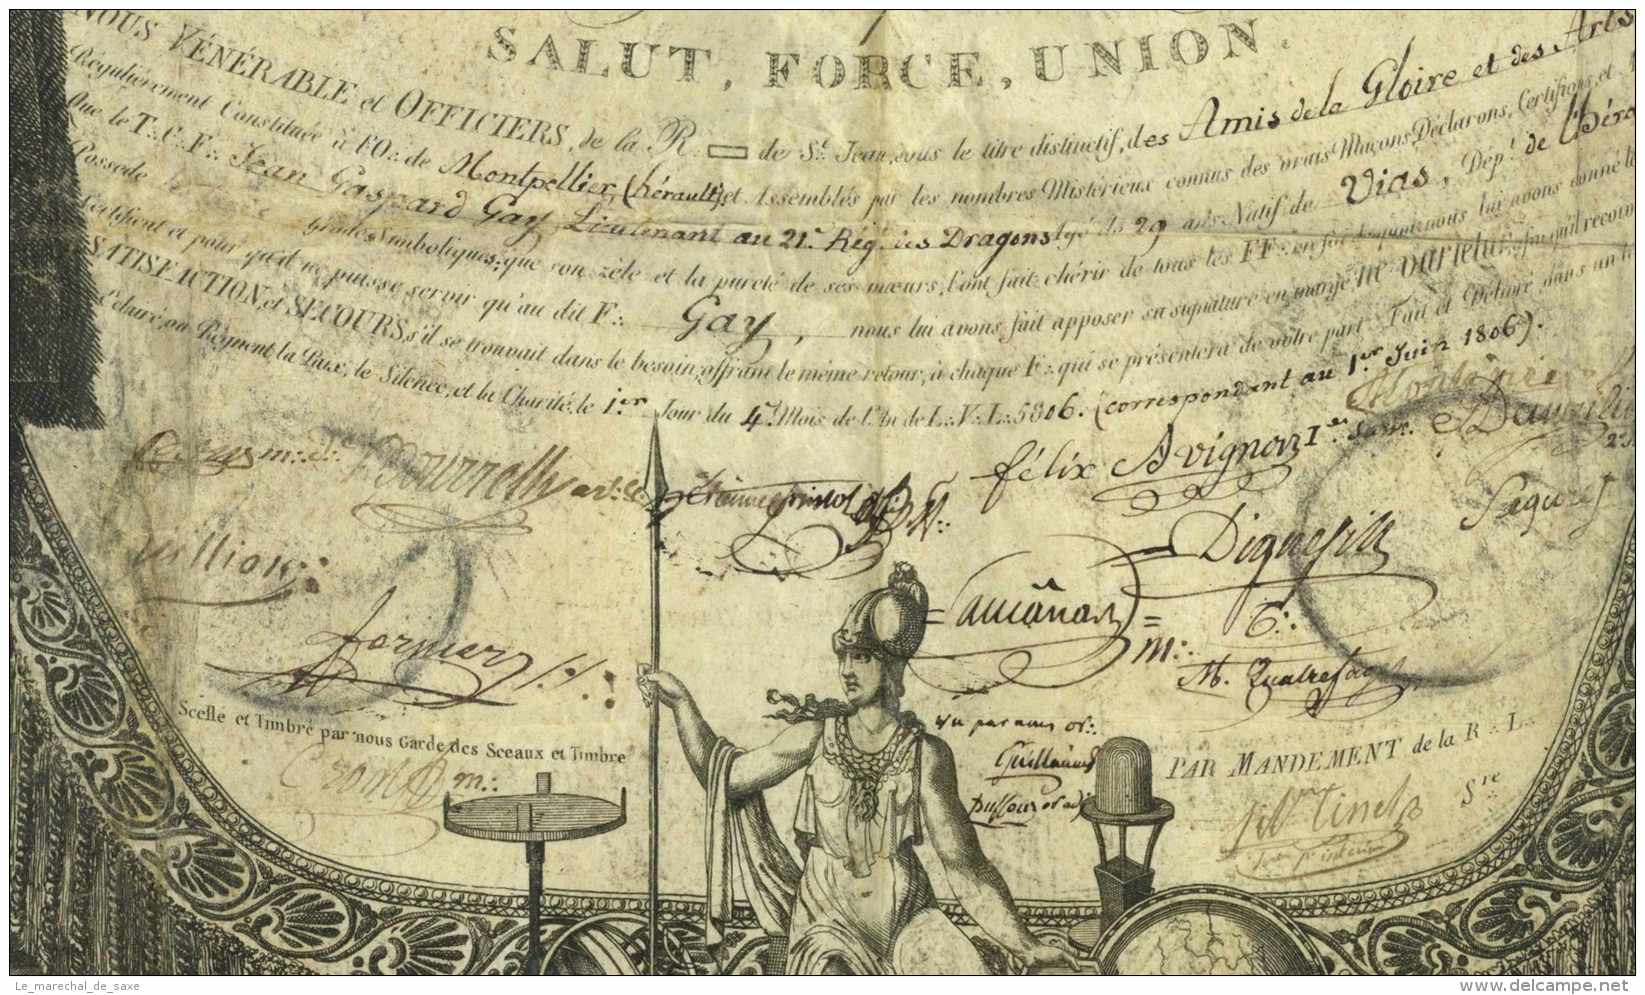 SALUT, FORCE, UNION.
NOUS VÉNÉRABLE et OFFICIERS, de la R∴ ▭ de St. Jean, sous le titre distinctif, des Amis de la Gloire et des Arts
Régulièrement Constituée à l'O∴ de Montpellier, (hérault) et Assemblés par les nombres Mistérieux connus des vrais Maçons, Déclarons, Certifions, et
Que le T∴ C∴ F∴ Jean Gaspard Gay, Lieutenant au 21e Rég. des Dragons, Agé de 29 ans Natif de Vias, Dép.t de l'héra
Possede Grades Simboliques; que son zèle et la pureté de ses mœurs, l'ont fait chérir de tous les FF∴ en foi de quoi nous lui avons donné le
Certificat et pour qu'il ne puisse servir qu'au dit F∴ Gay, nous lui avons fait apposer sa signature en marge, ne varietur, afin qu'il reçoive
SATISFACTION, et SECOURS, s'il se trouvait dans le besoin, offrant le même retour, à chaque F∴ qui se présentera de votre part. Fait et Délivré dans un lieu
Eclairé, où Règnent la Paix, le Silence, et la Charité, le 1.er Jour du 4.e Mois de l'An de L∴ V∴ L∴ 5806. (correspondant au 1.er Juin 1806).
félix Avignon 1er Surv.
Seguret
m∴
T∴
Scellé et Timbré par nous Garde des Sceaux et Timbre
Vu par nous or∴
Guillaume
PAR MANDEMENT de la R∴ L∴
Sre
Tinel
Le_marechal_de_saxe
www.delcampe.net